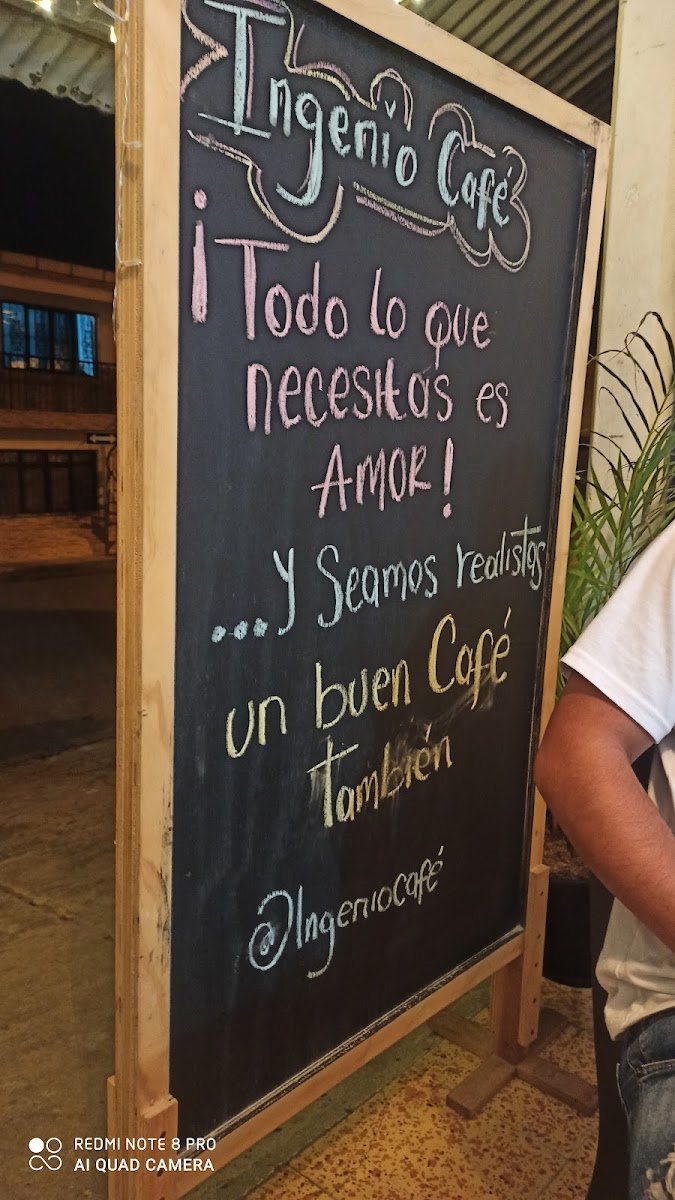 Ingenio Café
¡Todo lo que
necesitas es
AMOR!
...y Seamos realistas
un buen Café
También
@Ingeniocafé
REDMI NOTE 8 PRO
AI QUAD CAMERA